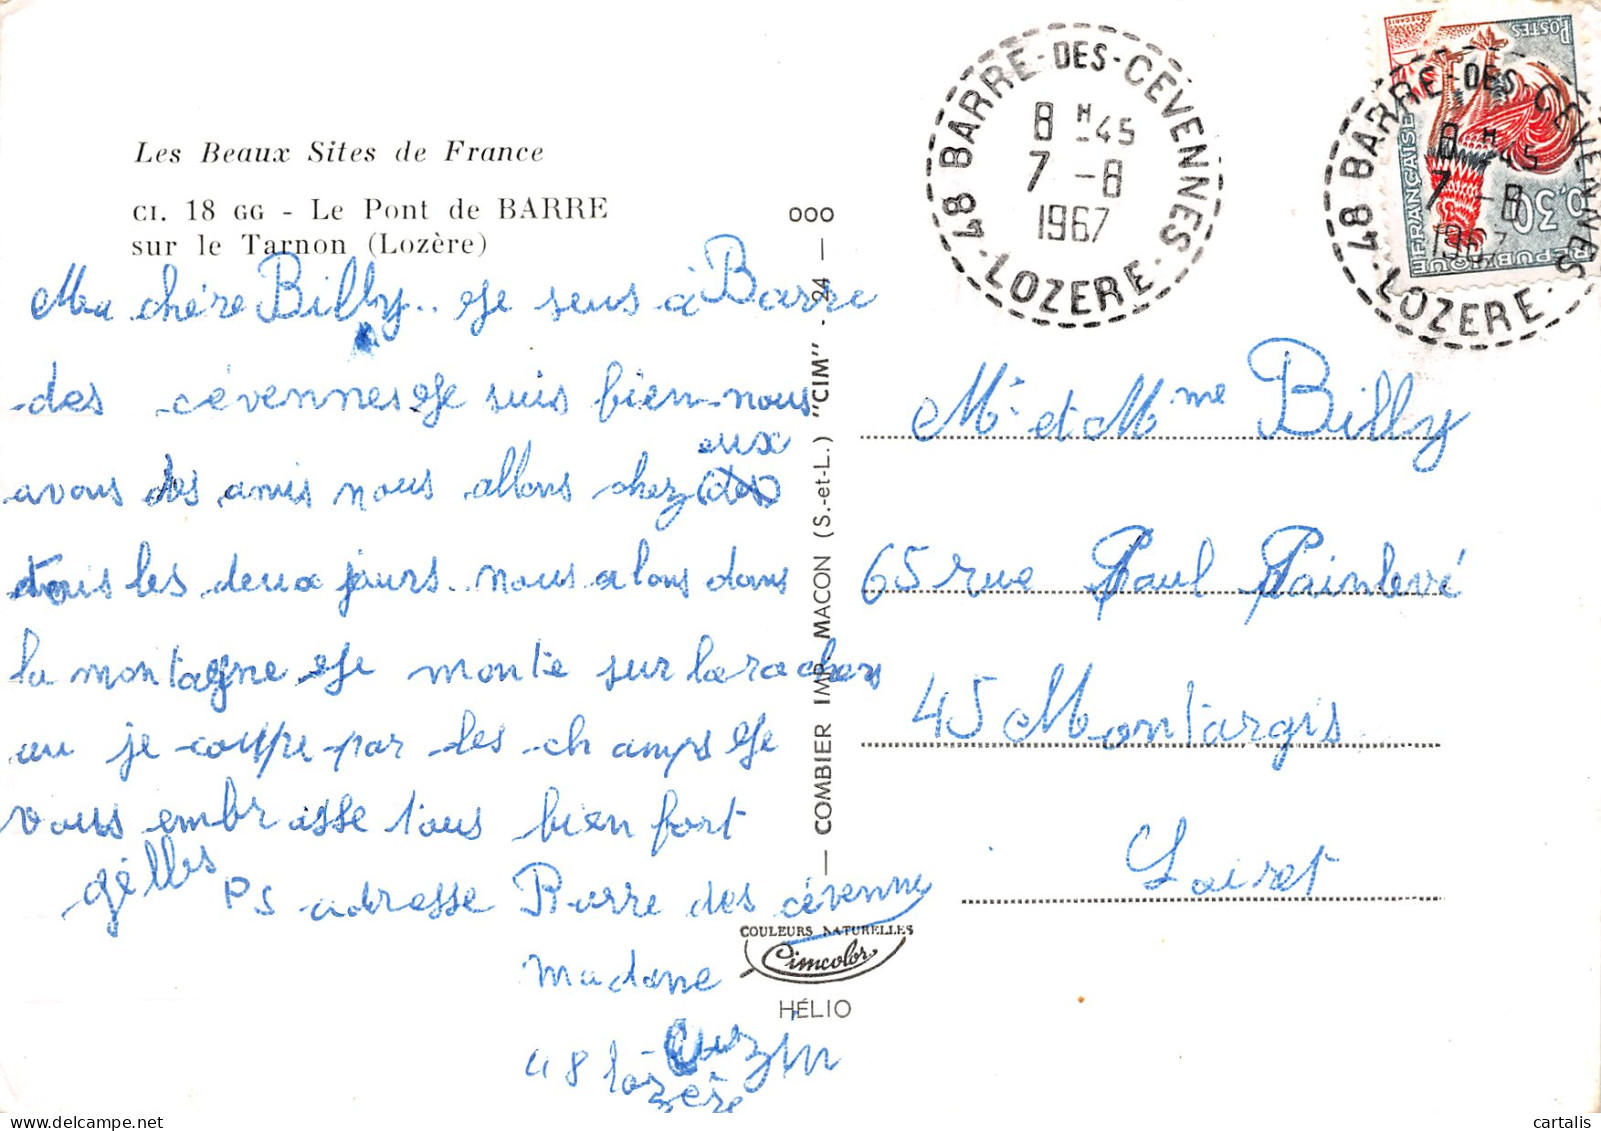 Les Beaux Sites de France
CI. 18 GG - Le Pont de BARRE
sur le Tarnon (Lozère)
Ma chère Billy.. Je suis à Barre
des cévennes Je suis bien nous
avons des amis nous allons chez eux
tous les deux jours.. nous alons dans
la montagne Je monte sur la rochers
ou je coupe par les champs Je
vous embrasse tous bien fort
gilles
PS adresse Barre des cévenne
Madame
Luzin
48 lozère
— COMBIER IMP. MACON (S.-et-L.) "CIM" - 24 — 000
COULEURS NATURELLES
Cimcolor
HÉLIO
48 BARRE-DES-CEVENNES
8 H 45
7 -8
1967
LOZERE
48 BARRE-DES-CEVENNES
8 H 45
7 -8
1967
LOZERE
REPUBLIQUE FRANÇAISE
POSTES
0,30
Mr et Mme Billy
65 rue Paul Painlevé
45 Montargis
Loiret
cartalis